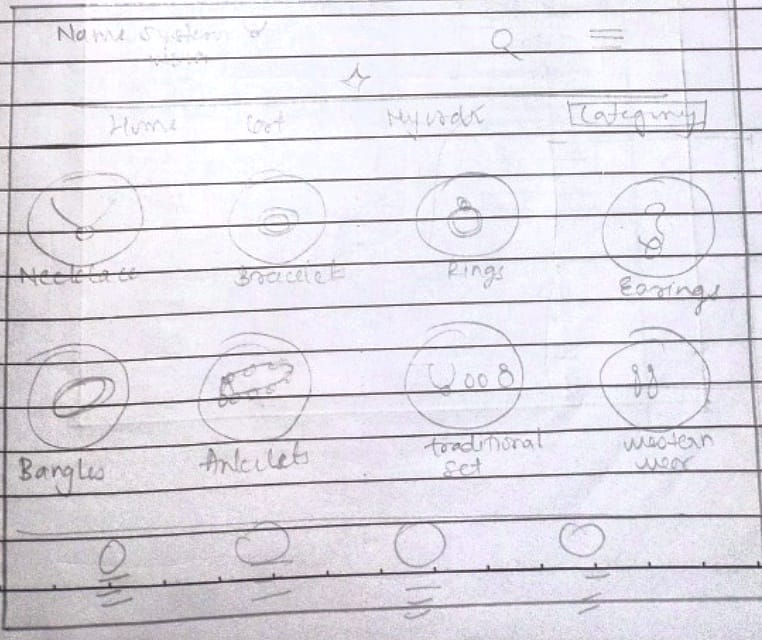 Name System &
Home Cart Category
Necklace Bracelet Rings Earings
Bangles Anklets traditional western
set wear